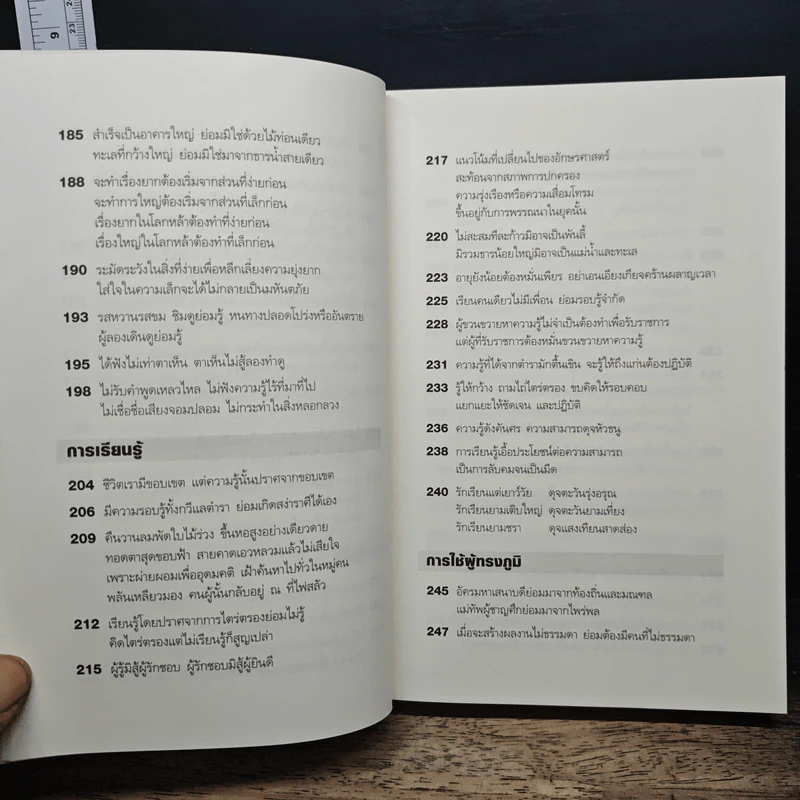 9
24
23
185 สำเร็จเป็นอาคารใหญ่ ย่อมมิใช่ด้วยไม้ท่อนเดียว
ทะเลที่กว้างใหญ่ ย่อมมิใช่มาจากธารน้ำสายเดียว
188 จะทำเรื่องยากต้องเริ่มจากส่วนที่ง่ายก่อน
จะทำการใหญ่ต้องเริ่มจากส่วนที่เล็กก่อน
เรื่องยากในโลกหล้าต้องทำที่ง่ายก่อน
เรื่องใหญ่ในโลกหล้าต้องทำที่เล็กก่อน
190 ระมัดระวังในสิ่งที่ง่ายเพื่อหลีกเลี่ยงความยุ่งยาก
ใส่ใจในความเล็กจะได้ไม่กลายเป็นมหันตภัย
193 รสหวานรสขม ชิมดูย่อมรู้ หนทางปลอดโปร่งหรืออันตราย
ผู้ลองเดินดูย่อมรู้
195 ได้ฟังไม่เท่าตาเห็น ตาเห็นไม่สู้ลองทำดู
198 ไม่รับคำพูดเหลวไหล ไม่ฟังความรู้ไร้ที่มาที่ไป
ไม่เชื่อชื่อเสียงจอมปลอม ไม่กระทำในสิ่งหลอกลวง
การเรียนรู้
204 ชีวิตเรามีขอบเขต แต่ความรู้นั้นปราศจากขอบเขต
206 มีความรอบรู้ทั้งกวีแลตำรา ย่อมเกิดสง่าราศีได้เอง
209 คืนวานลมพัดใบไม้ร่วง ขึ้นหอสูงอย่างเดียวดาย
ทอดตาสุดขอบฟ้า สายคาดเอวหลวมแล้วไม่เสียใจ
เพราะผ่ายผอมเพื่ออุดมคติ เฝ้าค้นหาไปทั่วในหมู่คน
พลันเหลียวมอง คนผู้นั้นกลับอยู่ ณ ที่ไฟสลัว
212 เรียนรู้โดยปราศจากการไตร่ตรองย่อมไม่รู้
คิดไตร่ตรองแต่ไม่เรียนรู้ก็สูญเปล่า
215 ผู้รู้มิสู้ผู้รักชอบ ผู้รักชอบมิสู้ผู้ยินดี
217 แนวโน้มที่เปลี่ยนไปของอักษรศาสตร์
สะท้อนจากสภาพการปกครอง
ความรุ่งเรืองหรือความเสื่อมโทรม
ขึ้นอยู่กับการพรรณนาในยุคนั้น
220 ไม่สะสมทีละก้าวมิอาจเป็นพันลี้
มิรวมธารน้อยใหญ่มิอาจเป็นแม่น้ำและทะเล
223 อายุยังน้อยต้องหมั่นเพียร อย่าเอนเอียงเกียจคร้านผลาญเวลา
225 เรียนคนเดียวไม่มีเพื่อน ย่อมรอบรู้จำกัด
228 ผู้ขวนขวายหาความรู้ไม่จำเป็นต้องทำเพื่อรับราชการ
แต่ผู้ที่รับราชการต้องหมั่นขวนขวายหาความรู้
231 ความรู้ที่ได้จากตำรามักตื้นเขิน จะรู้ให้ถึงแก่นต้องปฏิบัติ
233 รู้ให้กว้าง ถามไถ่ไตร่ตรอง ขบคิดให้รอบคอบ
แยกแยะให้ชัดเจน และปฏิบัติ
236 ความรู้ดังคันศร ความสามารถดุจหัวธนู
238 การเรียนรู้เอื้อประโยชน์ต่อความสามารถ
เป็นการลับคมจนเป็นมีด
240 รักเรียนแต่เยาว์วัย ดุจตะวันรุ่งอรุณ
รักเรียนยามเติบใหญ่ ดุจตะวันยามเที่ยง
รักเรียนยามชรา ดุจแสงเทียนสาดส่อง
การใช้ผู้ทรงภูมิ
245 อัครมหาเสนาบดีย่อมมาจากท้องถิ่นและมณฑล
แม่ทัพผู้ชาญศึกย่อมมาจากไพร่พล
247 เมื่อจะสร้างผลงานไม่ธรรมดา ย่อมต้องมีคนที่ไม่ธรรมดา